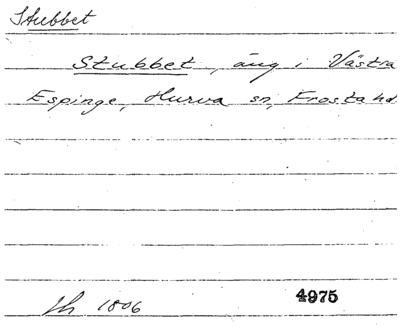 Stubbet
Stubbet, äng i Västra
Espinge, Hurva sn, Frosta hd.
1806
4975